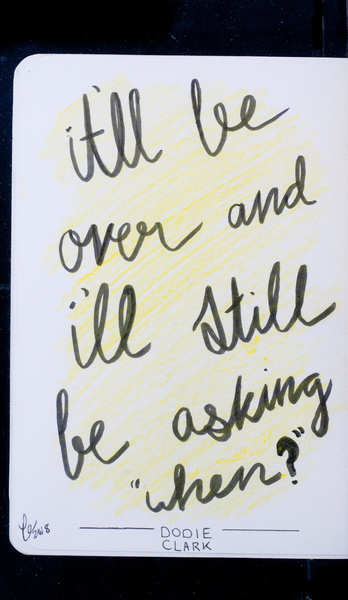 it'll be
over and
i'll still
be asking
"when?"
DODIE
CLARK